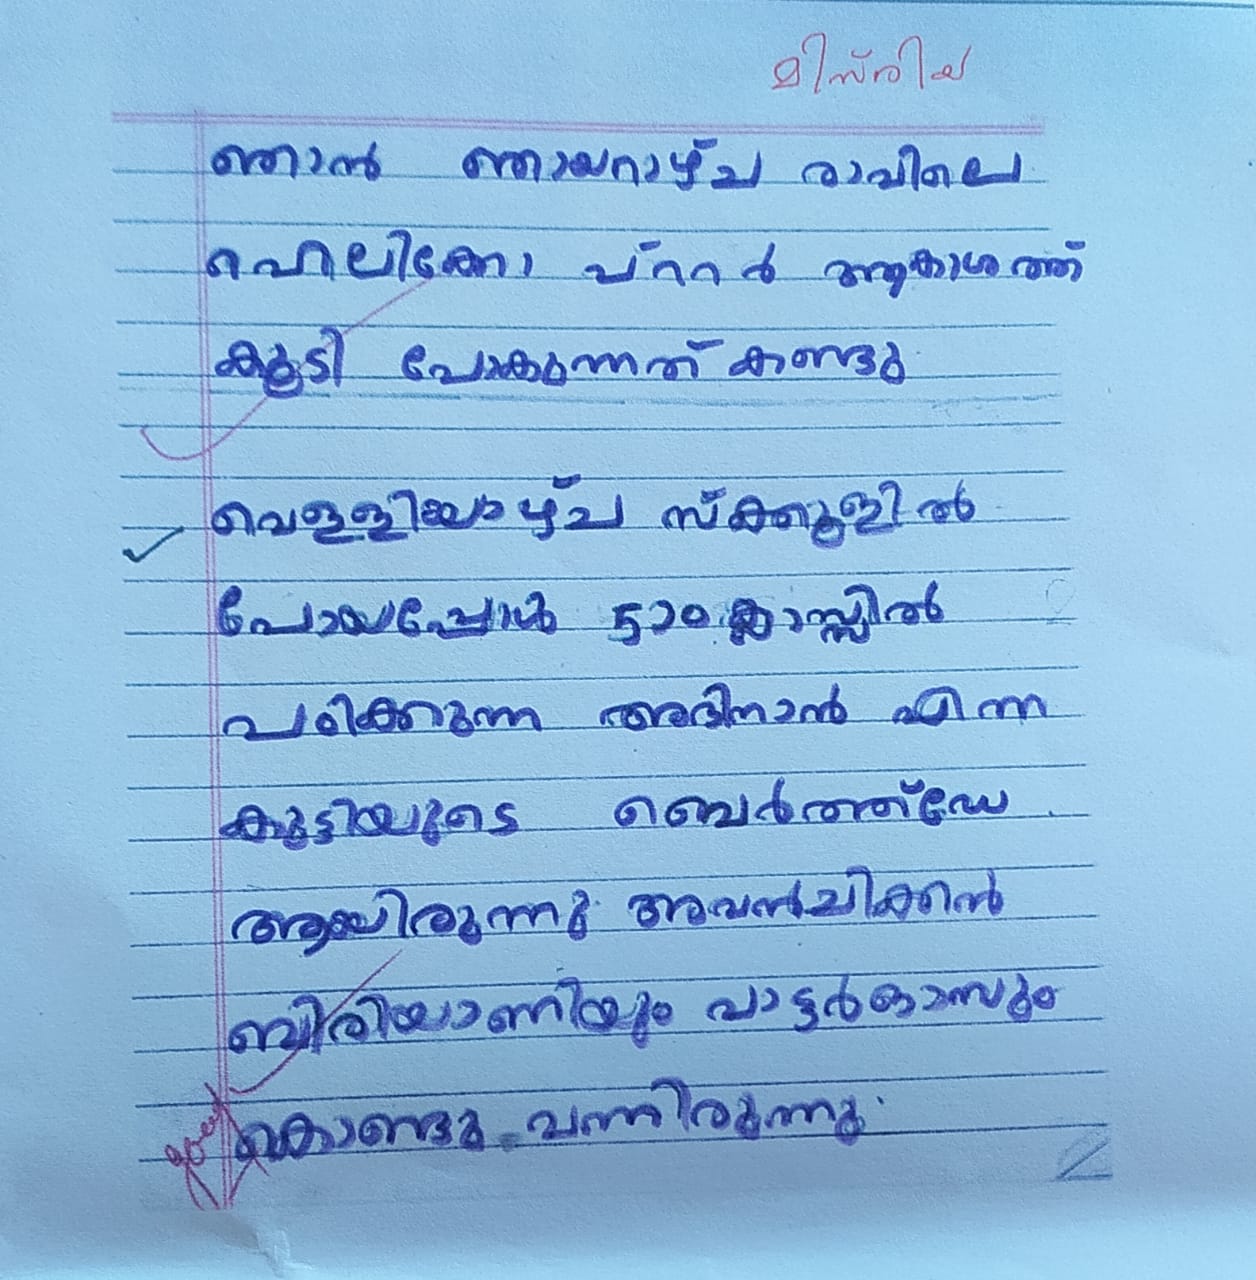 മിസ്രിയ
ഞാൻ ഞായറാഴ്ച രാവിലെ
ഹെലിക്കോ പ്ററർ ആകാശത്ത്
കൂടി പോകുന്നത് കണ്ടു.
വെള്ളിയാഴ്ച സ്ക്കൂളിൽ
പോയപ്പോൾ 5ാം ക്ലാസ്സിൽ
പഠിക്കുന്ന അദിനാൻ എന്ന
കുട്ടിയുടെ ബെർത്ത്ഡേ
ആയിരുന്നു. അവൻ ചിക്കൻ
ബിരിയാണിയും പാട്ടർകാസും
കൊണ്ടു വന്നിരുന്നു.
good
2